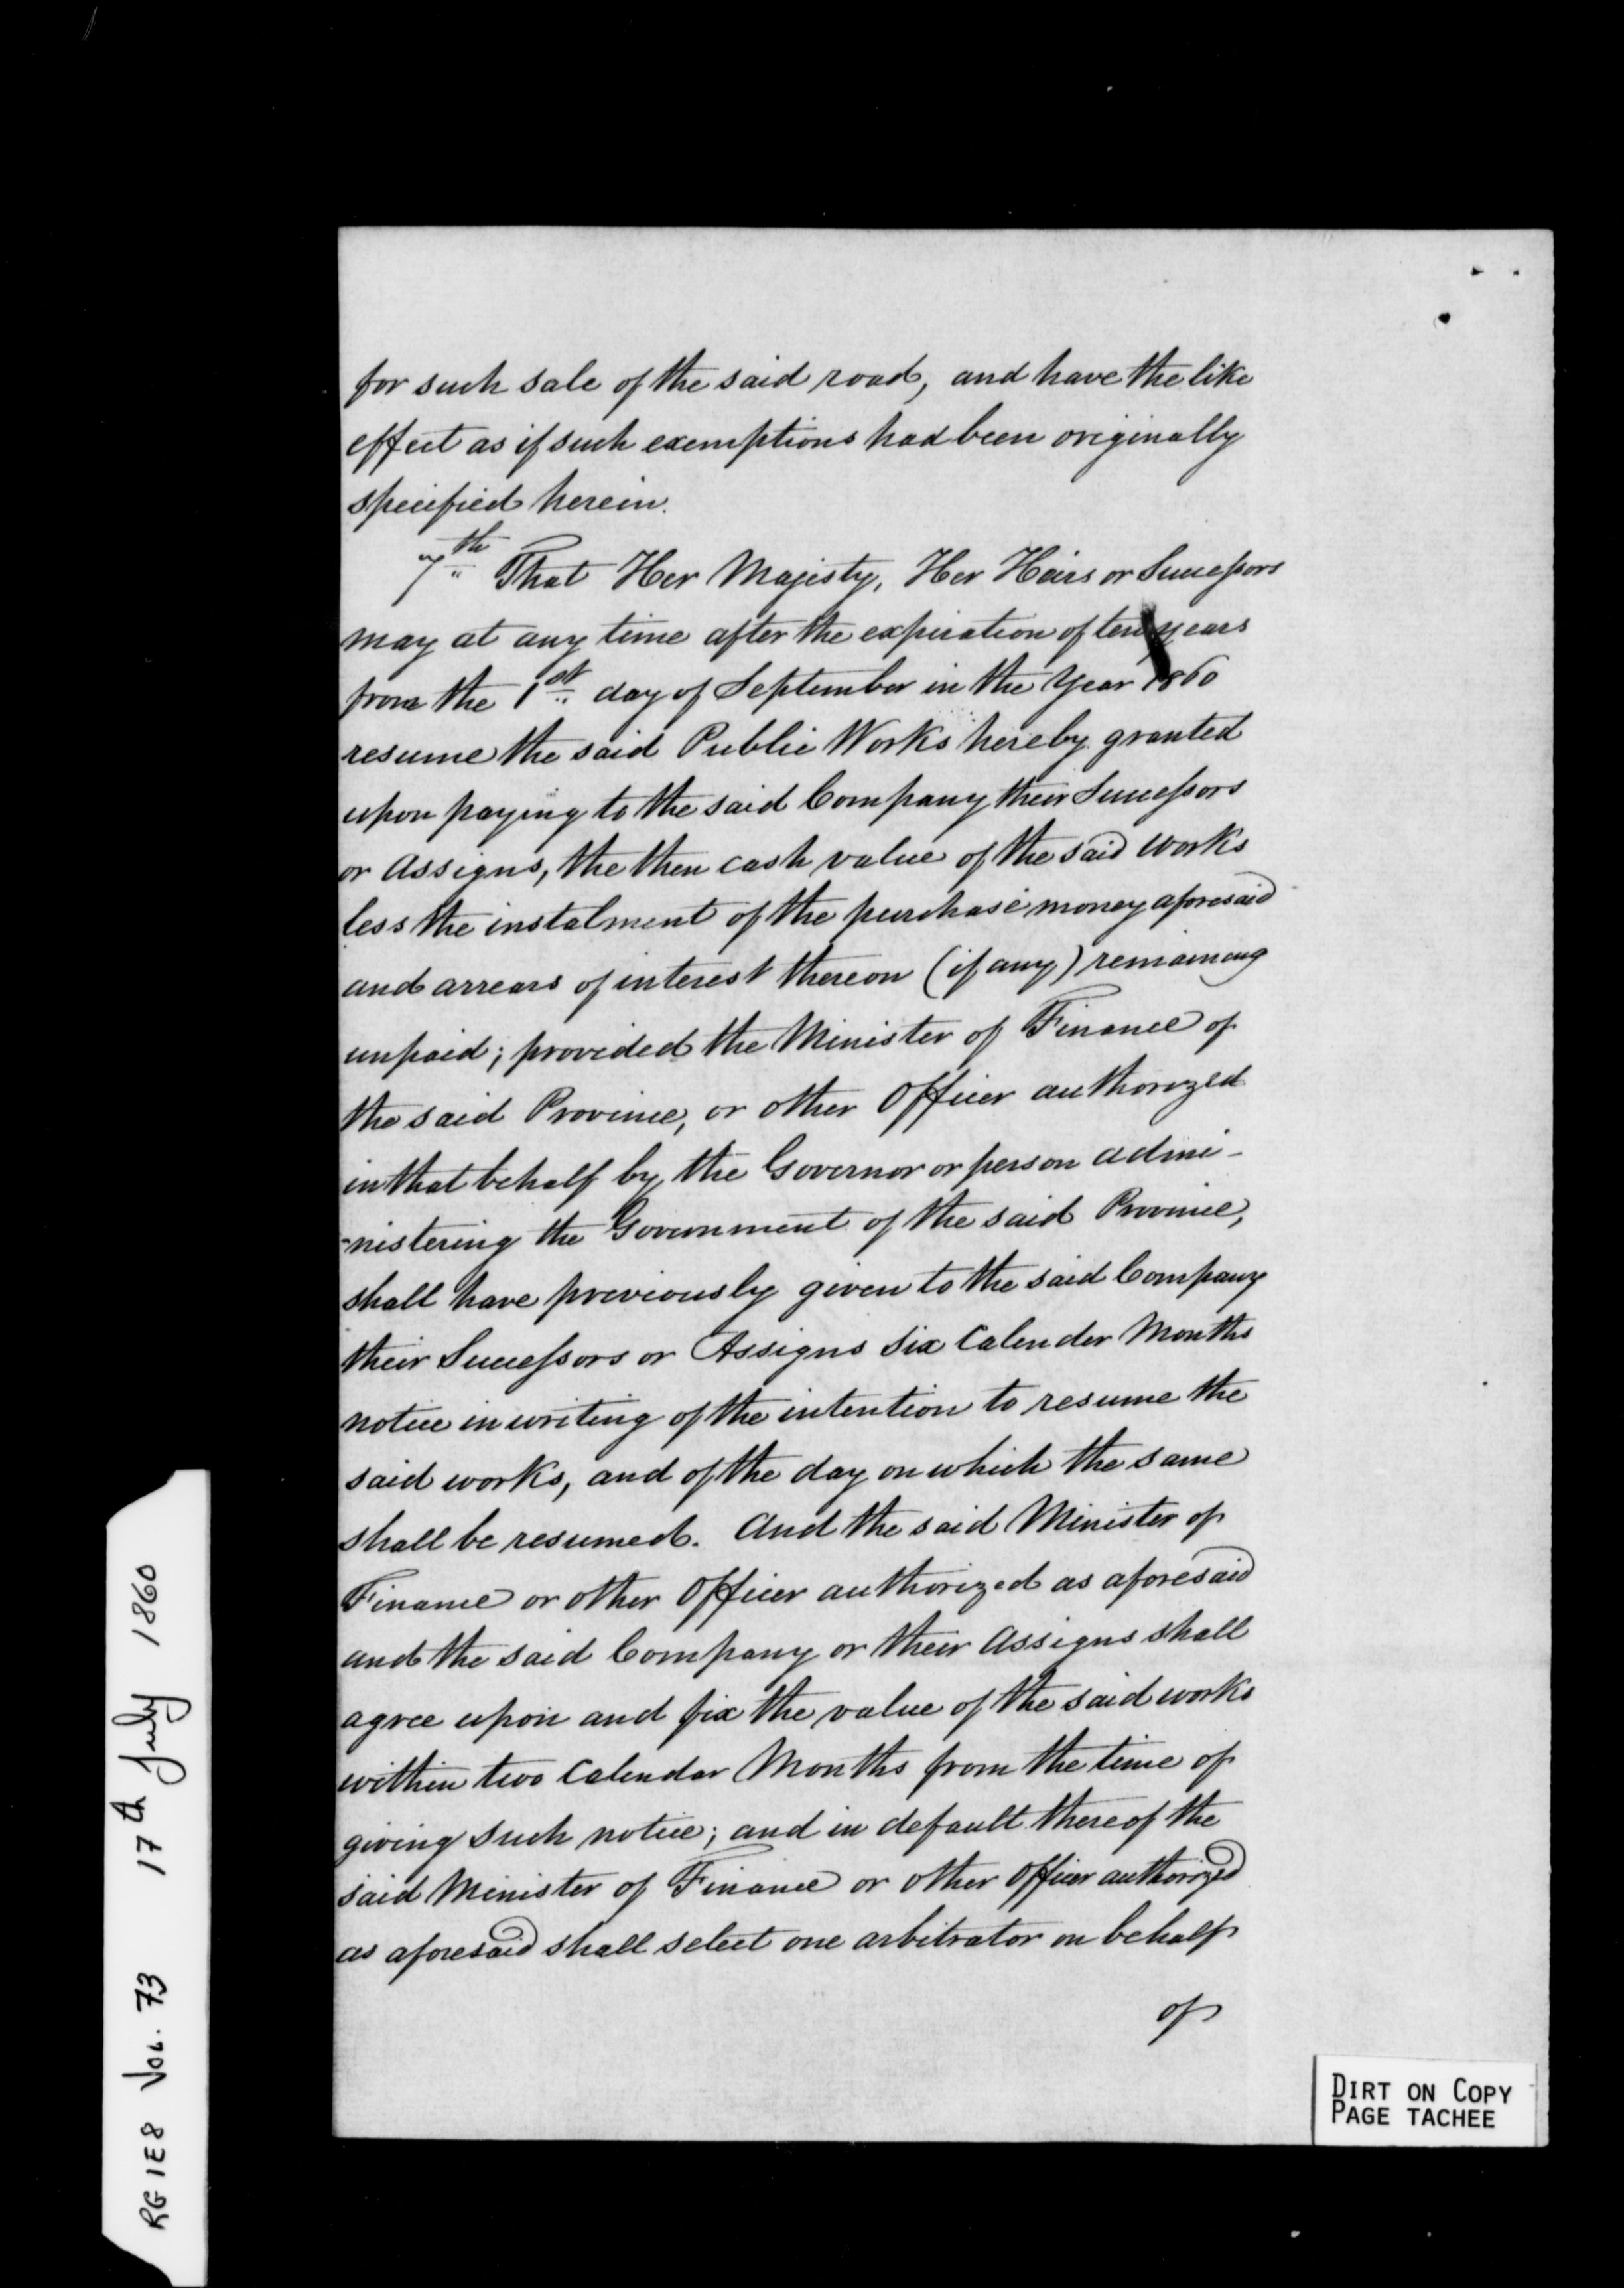 for such sale of the said road, and have the like
effect as if such exemptions had been originally
specified herein.
7th That Her Majesty, Her Heirs or Successors
may at any time after the expiration of ten years
from the 1st day of September in the Year 1860
resume the said Public Works hereby granted
upon paying to the said Company their Successors
or Assigns, the then cash value of the said Works
less the instalment of the purchase money aforesaid
and arrears of interest thereon (if any) remaining
unpaid; provided the Minister of Finance of
the said Province, or other Officer authorized
in that behalf by the Governor or person admi-
-nistering the Government of the said Province,
shall have previously given to the said Company
their Successors or Assigns six Calender Months
notice in writing of the intention to resume the
said works, and of the day on which the same
shall be resumed. And the said Minister of
Finance or other Officer authorized as aforesaid
and the said Company or their Assigns shall
agree upon and fix the value of the said works
within two Calendar Months from the time of
giving such notice; and in default thereof the
said Minister of Finance or other Officer authorized
as aforesaid shall select one arbitrator on behalf
of
RG 1E8 VOL. 73 17th July 1860
DIRT ON COPY
PAGE TACHEE